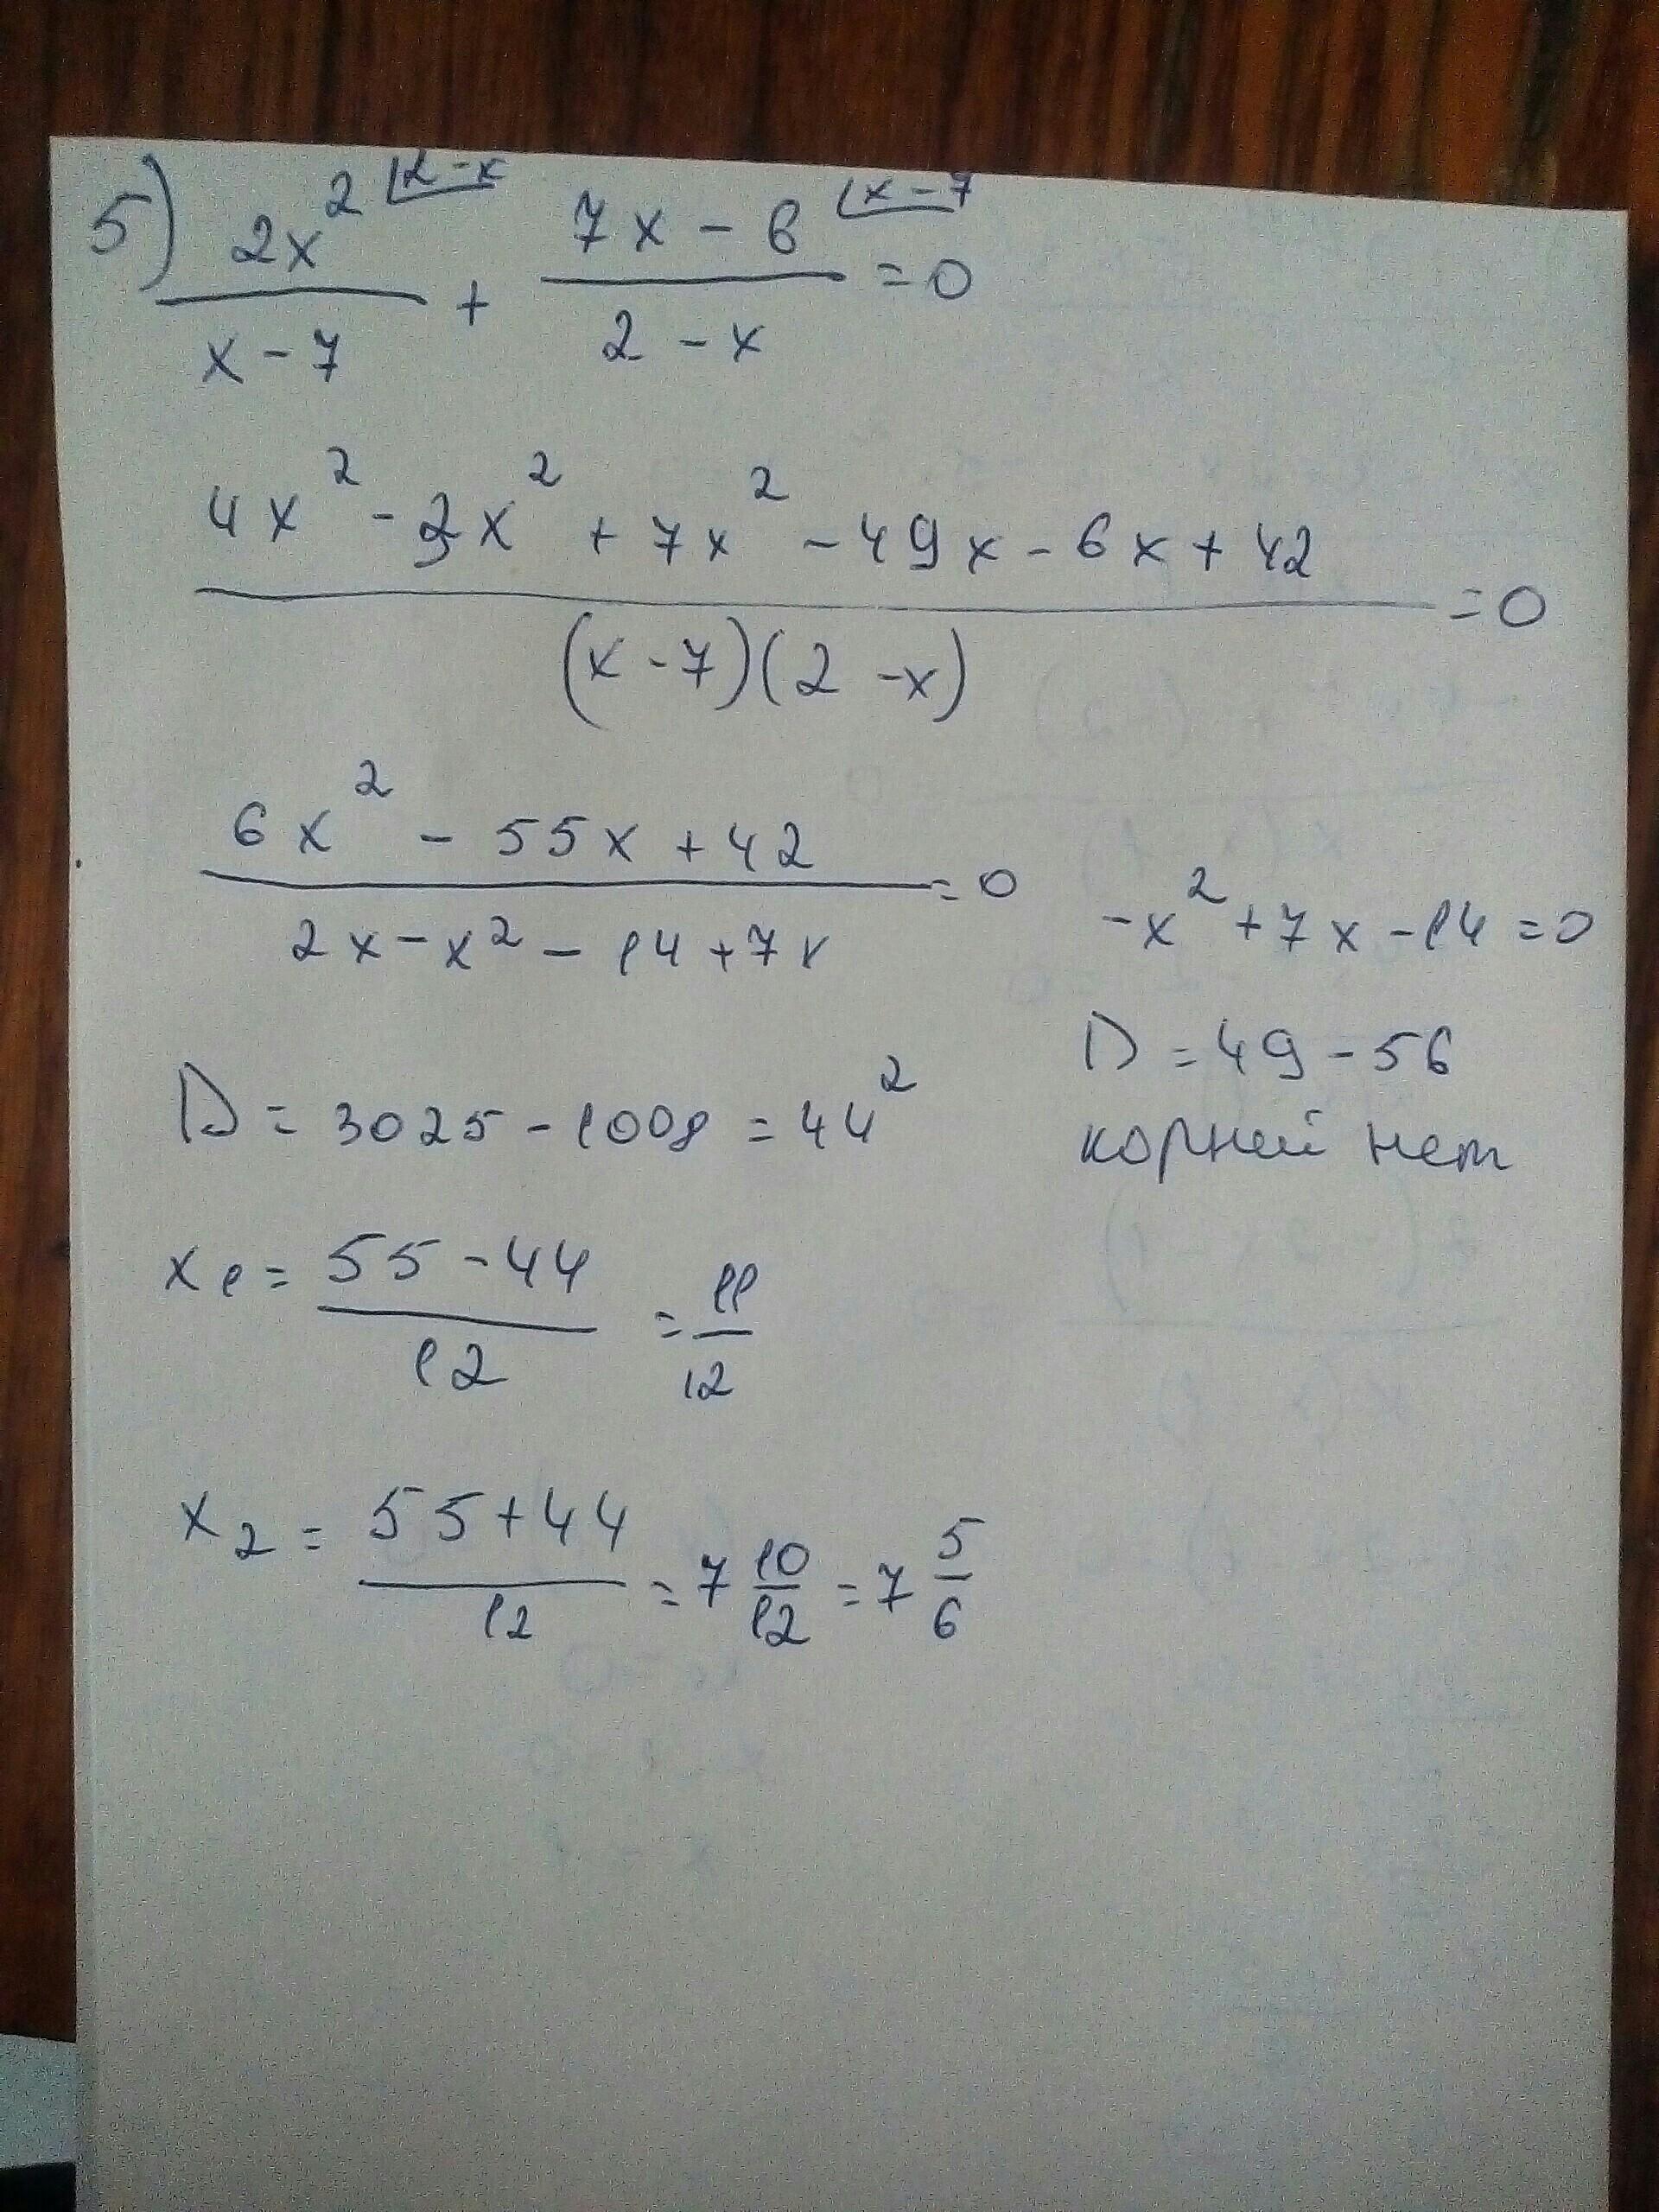 5) 2x² ⌊2-x / x-7 + 7x-6 ⌊x-7 / 2-x = 0
4x² - 2x² + 7x² - 49x - 6x + 42 / (x-7)(2-x) = 0
6x² - 55x + 42 / 2x - x² - 14 + 7x = 0
-x² + 7x - 14 = 0
D = 49 - 56
корней нет
D = 3025 - 1008 = 44²
x₁ = 55-44 / 12 = 11/12
x₂ = 55+44 / 12 = 7 10/12 = 7 5/6